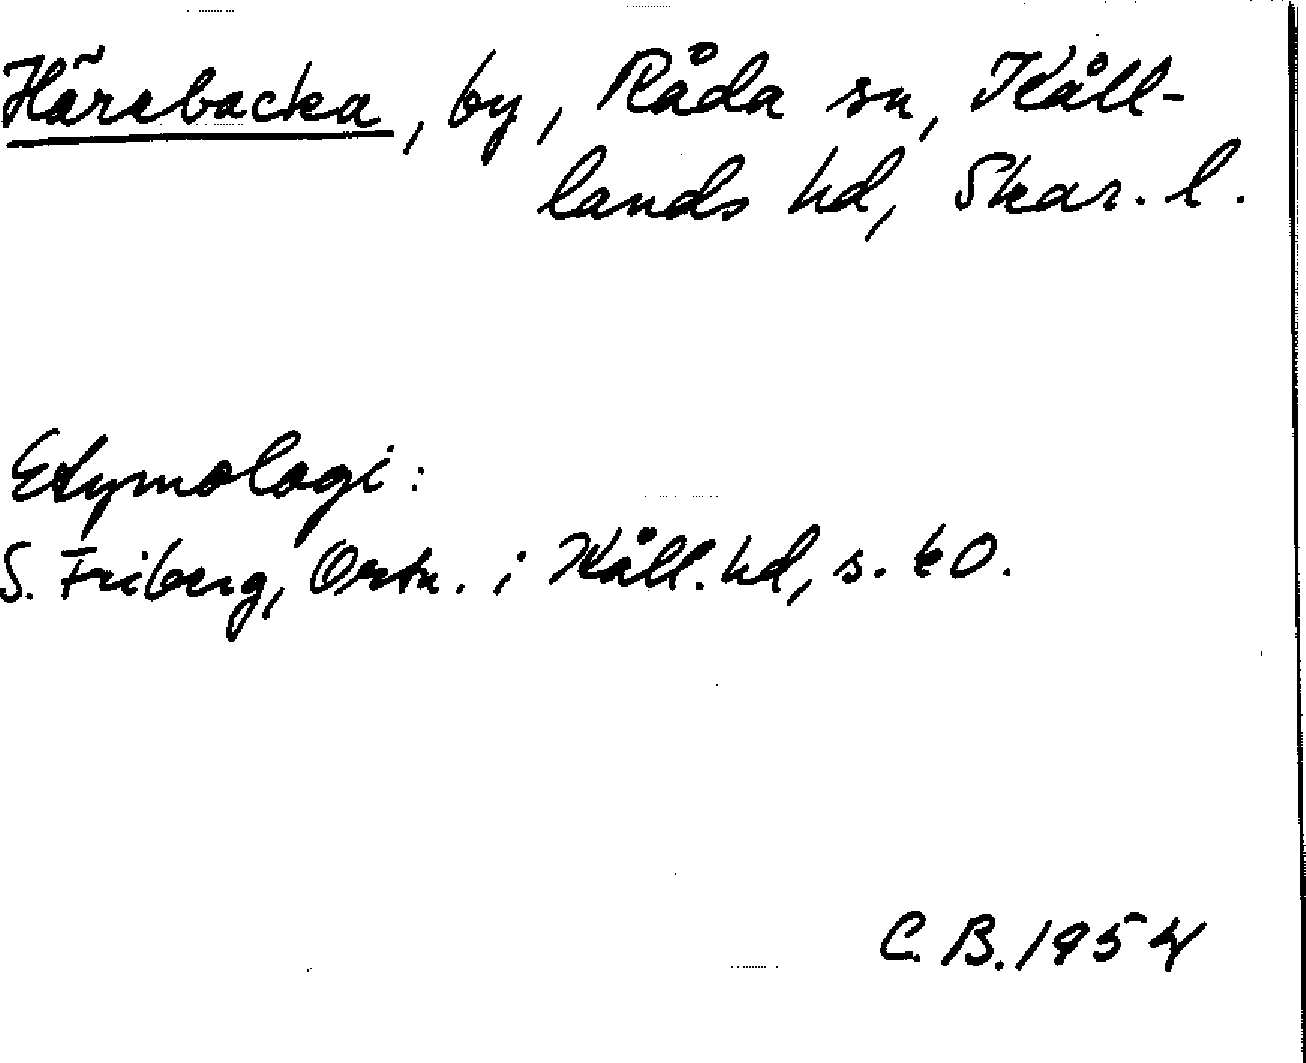 Härsbacka, by, Råda sn, Kåll-
lands hd, Skar. l.
Etymologi:
S. Friberg, Ortn. i Kåll. hd, s. 60.
C. B. 1954